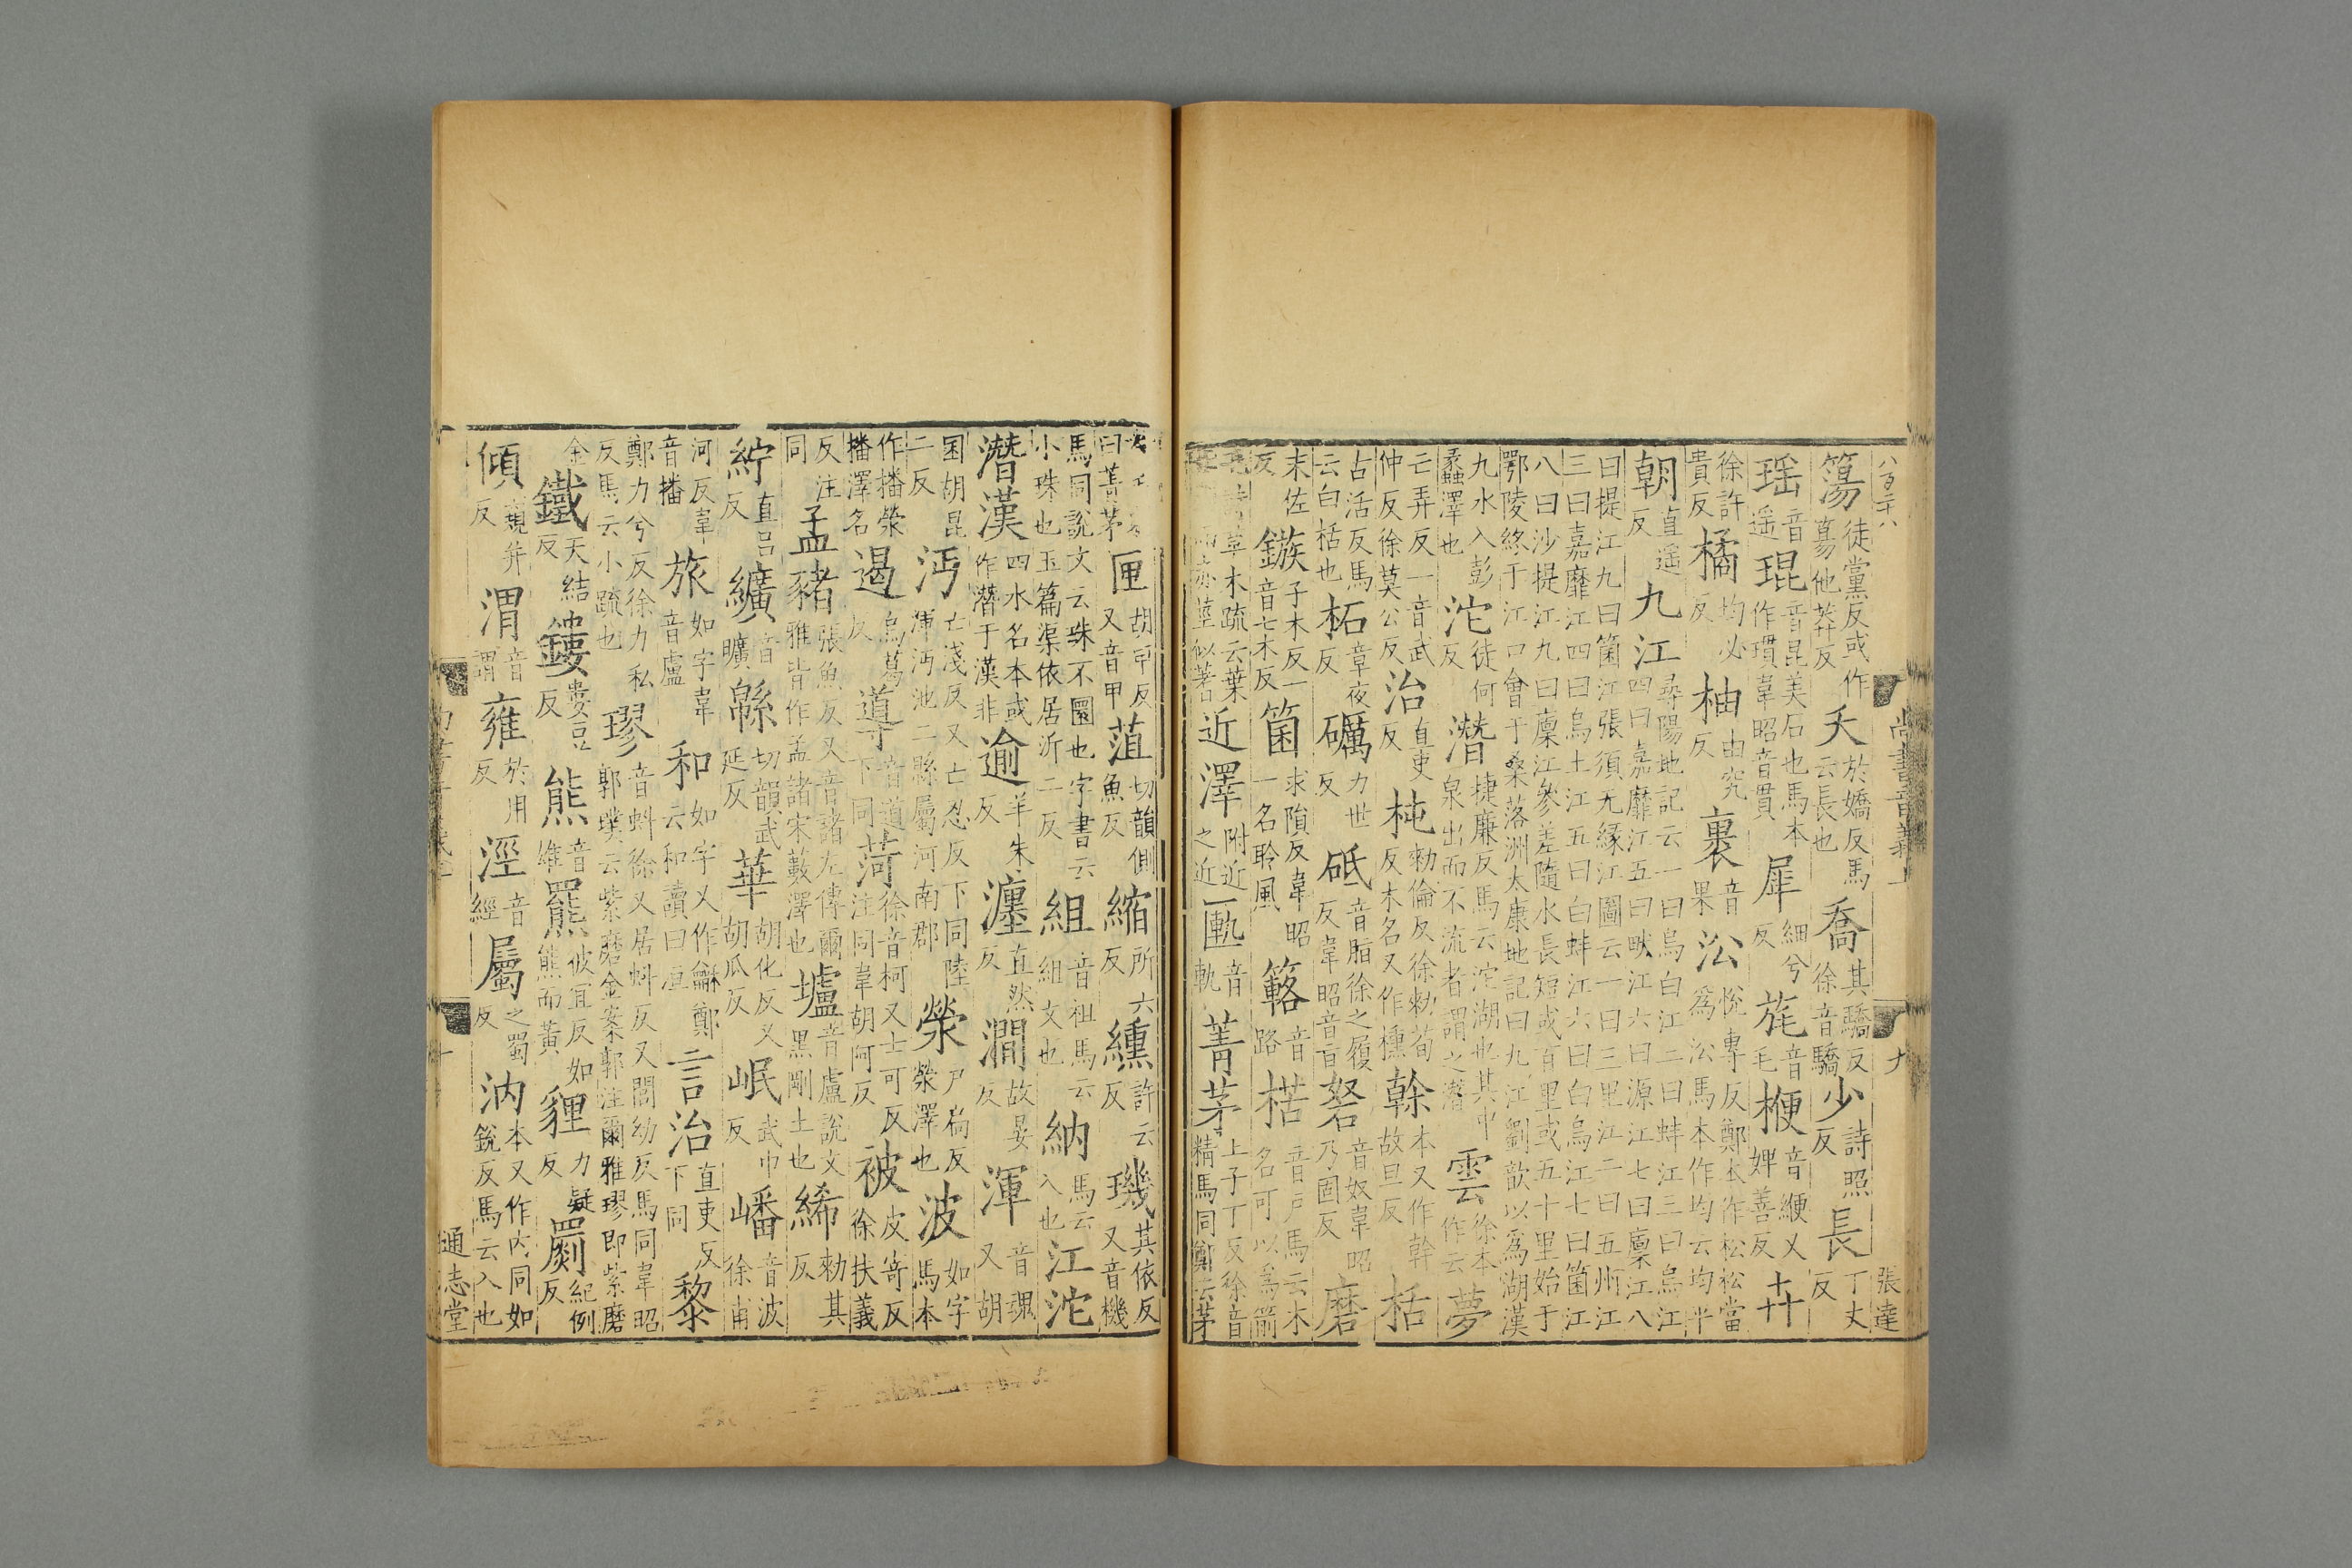 八百二十八
尚書音義上
九
張達
簜徒黨反或作𥯕他莽反夭於嬌反馬云長也喬其驕反徐音驕少詩照反長丁丈反
瑶音遥琨音昆美石也馬本作瑻韋昭音貫犀細兮反旄音毛楩音緶又婢善反
徐許貴反橘均必反柚由究反裹音果㳂悅專反鄭本作松松當為㳂馬本作均云均平
朝直遥反九江尋陽地記云一曰烏白江二曰蚌江三曰烏江四曰嘉靡江五曰畎江六曰源江七曰廩江八
曰提江九曰箘江張須无緣江圖云一曰三里江二曰五州江三曰嘉靡江四曰烏土江五曰白蚌江六曰白烏江七曰箘江
八曰沙提江九曰廩江參差隨水長短或百里或五十里始于鄂陵終于江口會于桑落洲太康地記曰九江劉歆以為湖漢
九水入彭蠡澤也沱徒何反潛捷廉反馬云沱湖也其中泉出而不流者謂之潛雲徐本作云夢
亡弄反一音武仲反徐莫公反治直吏反杶勑倫反徐勑荀反木名又作櫄幹本又作榦故旦反栝
古活反馬云白栝也柘章夜反礪力世反砥音脂徐之履反韋昭音旨砮音奴韋昭乃固反磨
末佐反鏃子木反一音七木反箘求隕反韋昭一名聆風簵音路楛音戶馬云木名可以為箭
草木疏云葉近附近之近澤匭音軌菁茅上子丁反徐音精馬同鄭云茅
曰菁茅匣胡甲反又音甲菹切韻側魚反縮所六反纁許云反璣其依反又音機
馬同說文云珠不圜也字書云小珠也玉篇渠依居沂二反組音祖馬云組文也納馬云入也江沱
潛漢四水名本或作潛于漢非逾羊朱反瀍直然反澗故晏反渾音魂又胡
囷胡昆二反沔亡淺反又亡忍反下同陸渾沔池二縣屬河南郡滎戶扃反滎澤也波如字馬本
作播滎播澤名遏烏葛反導音道下同菏徐音柯又士可反注同韋胡阿反被皮寄反徐扶義
反注同孟豬張魚反又音諸左傳爾雅皆作孟諸宋藪澤也壚音盧說文黑剛土也絺勑其反
紵直呂反纊音曠緜切韻武延反華胡化反又胡瓜反岷武巾反嶓音波徐甫
河反韋音播旅如字韋音盧和如字又作龢鄭云和讀曰洹言治直吏反下同黎
鄭力兮反徐力私反馬云小疏也璆音蚪徐又居蚪反又閭幼反馬同韋昭郭璞云紫磨金案郭注爾雅璆即紫磨
金鐵天結反鏤婁豆反熊音雄羆彼宜反如熊而黃貍力疑反罽紀例反
傾窺井反渭音謂雍於用反涇音經屬之蜀反汭本又作內同如銳反馬云入也
十
通志堂